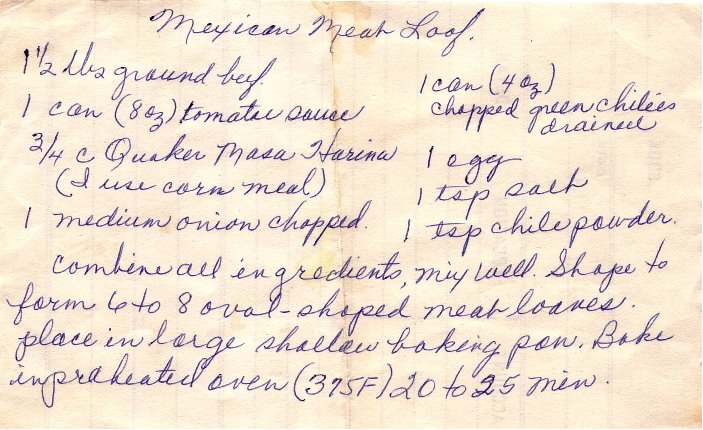 Mexican Meat Loaf.
1 1/2 lbs ground beef.
1 can (8oz) tomatoe sauce
3/4 c Quaker Masa Harina
(I use corn meal)
1 medium onion chopped.
1 can (4 oz)
chopped green chilies
drained
1 egg
1 tsp salt
1 tsp chile powder.
Combine all ingredients, mix well. Shape to
form 6 to 8 oval-shaped meat loaves.
place in large shallow baking pan. Bake
in preheated oven (375F) 20 to 25 min.